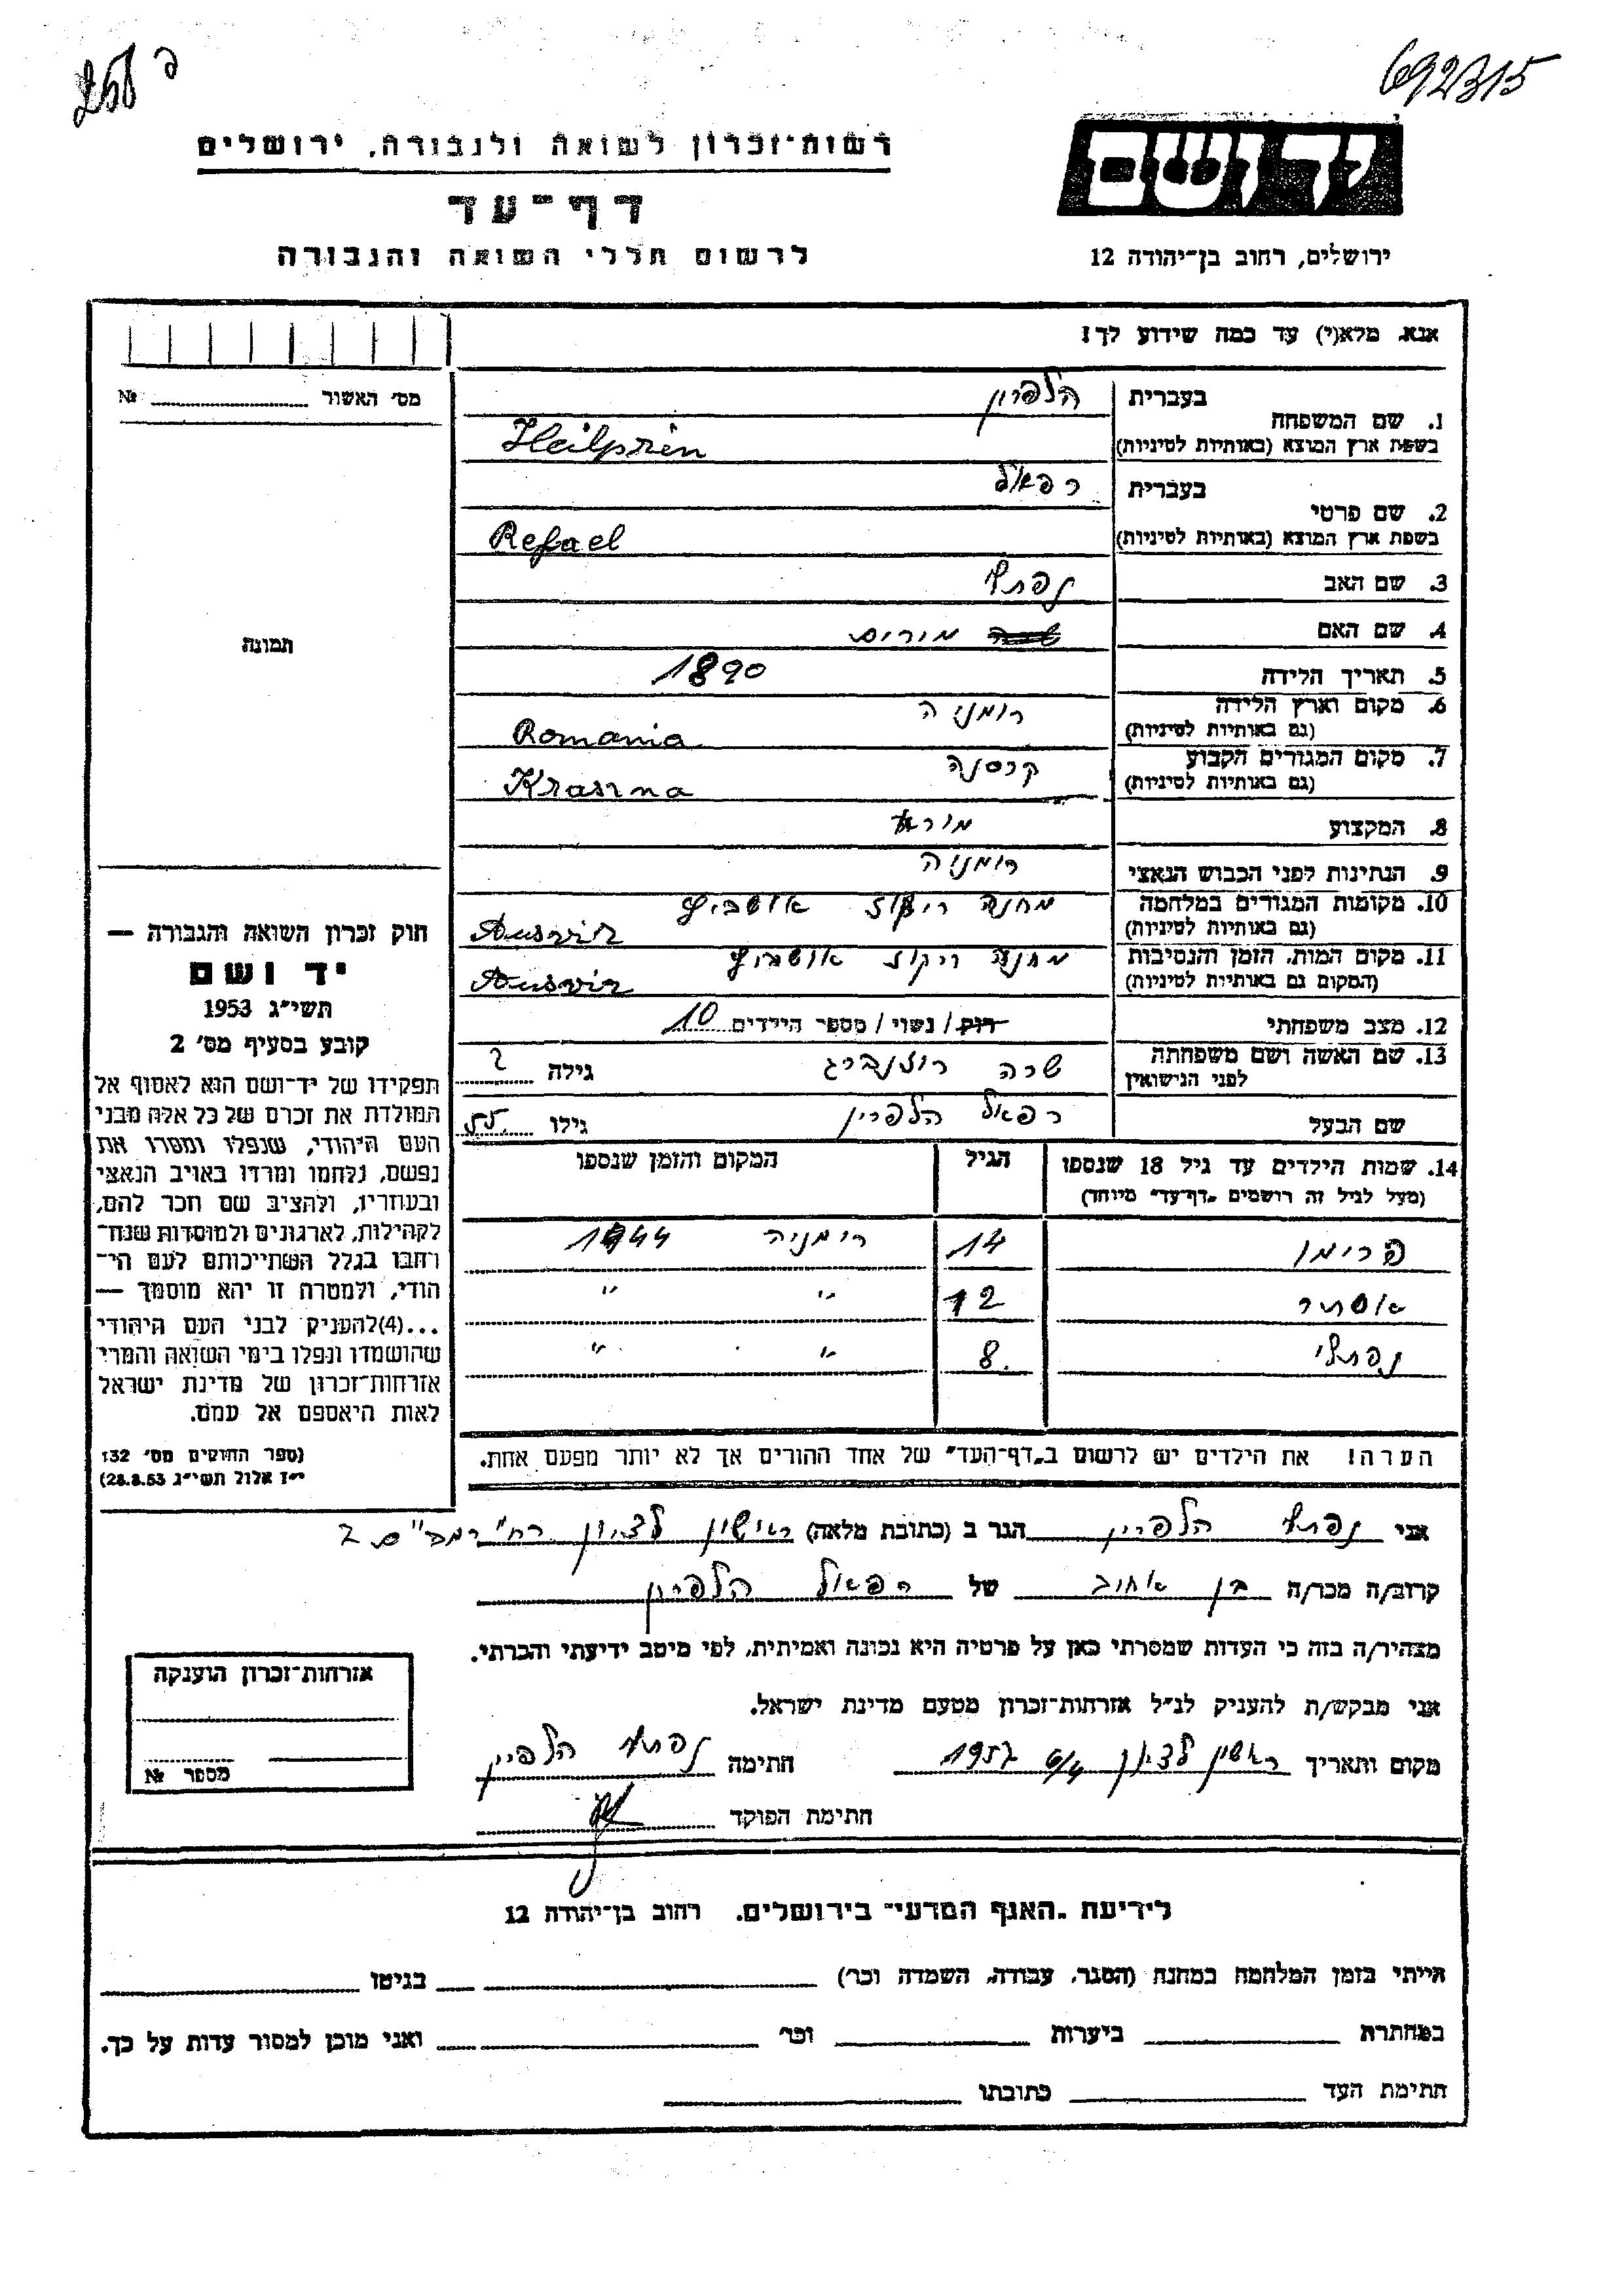 692315
258 ב
רשות־זכרון לשואה ולגבורה, ירושלים
יד ושם
דף־עד
לרשום חללי השואה והגבורה
ירושלים, רחוב בן־יהודה 12
אנא, מלא(י) עד כמה שידוע לך!
מס' האשור № 
תמונה
1. שם המשפחה
בעברית הלפרין
בשפת ארץ המוצא (באותיות לטיניות) Heilprin
2. שם פרטי
בעברית רפאל
בשפת ארץ המוצא (באותיות לטיניות) Refael
3. שם האב נפתלי
4. שם האם מירים
5. תאריך הלידה 1890
6. מקום וארץ הלידה רומניה
(גם באותיות לטיניות) Romania
7. מקום המגורים הקבוע קרסנה
(גם באותיות לטיניות) Krasna
8. המקצוע מורה
9. הנתינות לפני הכבוש הנאצי רומניה
10. מקומות המגורים במלחמה מחנה ריכוז אושביץ
(גם באותיות לטיניות) Ausviz
11. מקום המות, הזמן והנסיבות מחנה ריכוז אושביץ
(המקום גם באותיות לטיניות) Ausviz
12. מצב משפחתי רוק / נשוי / מספר הילדים 10
13. שם האשה ושם משפחתה שרה רוזנברג גילה ?
לפני הנישואין
שם הבעל רפאל הלפרין גילו 55
14. שמות הילדים עד גיל 18 שנספו הגיל המקום והזמן שנספו
(מעל לגיל זה רושמים "דף־עד" מיוחד)
14 רומניה 1944
אסתר 12 " "
נפתלי 8 " "
הערה! את הילדים יש לרשום ב"דף־העד" של אחד ההורים אך לא יותר מפעם אחת.
חוק זכרון השואה והגבורה —
יד ושם
תשי"ג 1953
קובע בסעיף מס' 2
תפקידו של יד־ושם הוא לאסוף אל
המולדת את זכרם של כל אלה מבני
העם היהודי, שנפלו ומסרו את
נפשם, נלחמו ומרדו באויב הנאצי
ובעוזריו, ולהציב שם וזכר להם,
לקהילות, לארגונים ולמוסדות שנח־
רבו בגלל השתייכותם לעם הי־
הודי, ולמטרה זו יהא מוסמך —
...(4)להעניק לבני העם היהודי
שהושמדו ונפלו בימי השואה והמרי
אזרחות־זכרון של מדינת ישראל
לאות היאספם אל עמם.
(ספר החוקים מס' 132
י"ז אלול תשי"ג 28.8.53)
אני נפתלי הלפרין הגר ב (כתובת מלאה) ראשון לציון רח' רמב"ם 2
קרוב/ה מכר/ה בן אחיו של רפאל הלפרין
מצהיר/ה בזה כי העדות שמסרתי כאן על פרטיה היא נכונה ואמיתית, לפי מיטב ידיעתי והכרתי.
אני מבקש/ת להעניק לנ"ל אזרחות־זכרון מטעם מדינת ישראל.
מקום ותאריך ראשון לציון 6/4 1957 חתימה נפתלי הלפרין
חתימת הפוקד
אזרחות־זכרון הוענקה
מספר №
לידיעת "האגף המדעי" בירושלים, רחוב בן־יהודה 12
הייתי בזמן המלחמה במחנה (הסגר, עבודה, השמדה וכו') בגיטו
במחתרת ביערות וכו' ואני מוכן למסור עדות על כך.
חתימת העד כתובתו